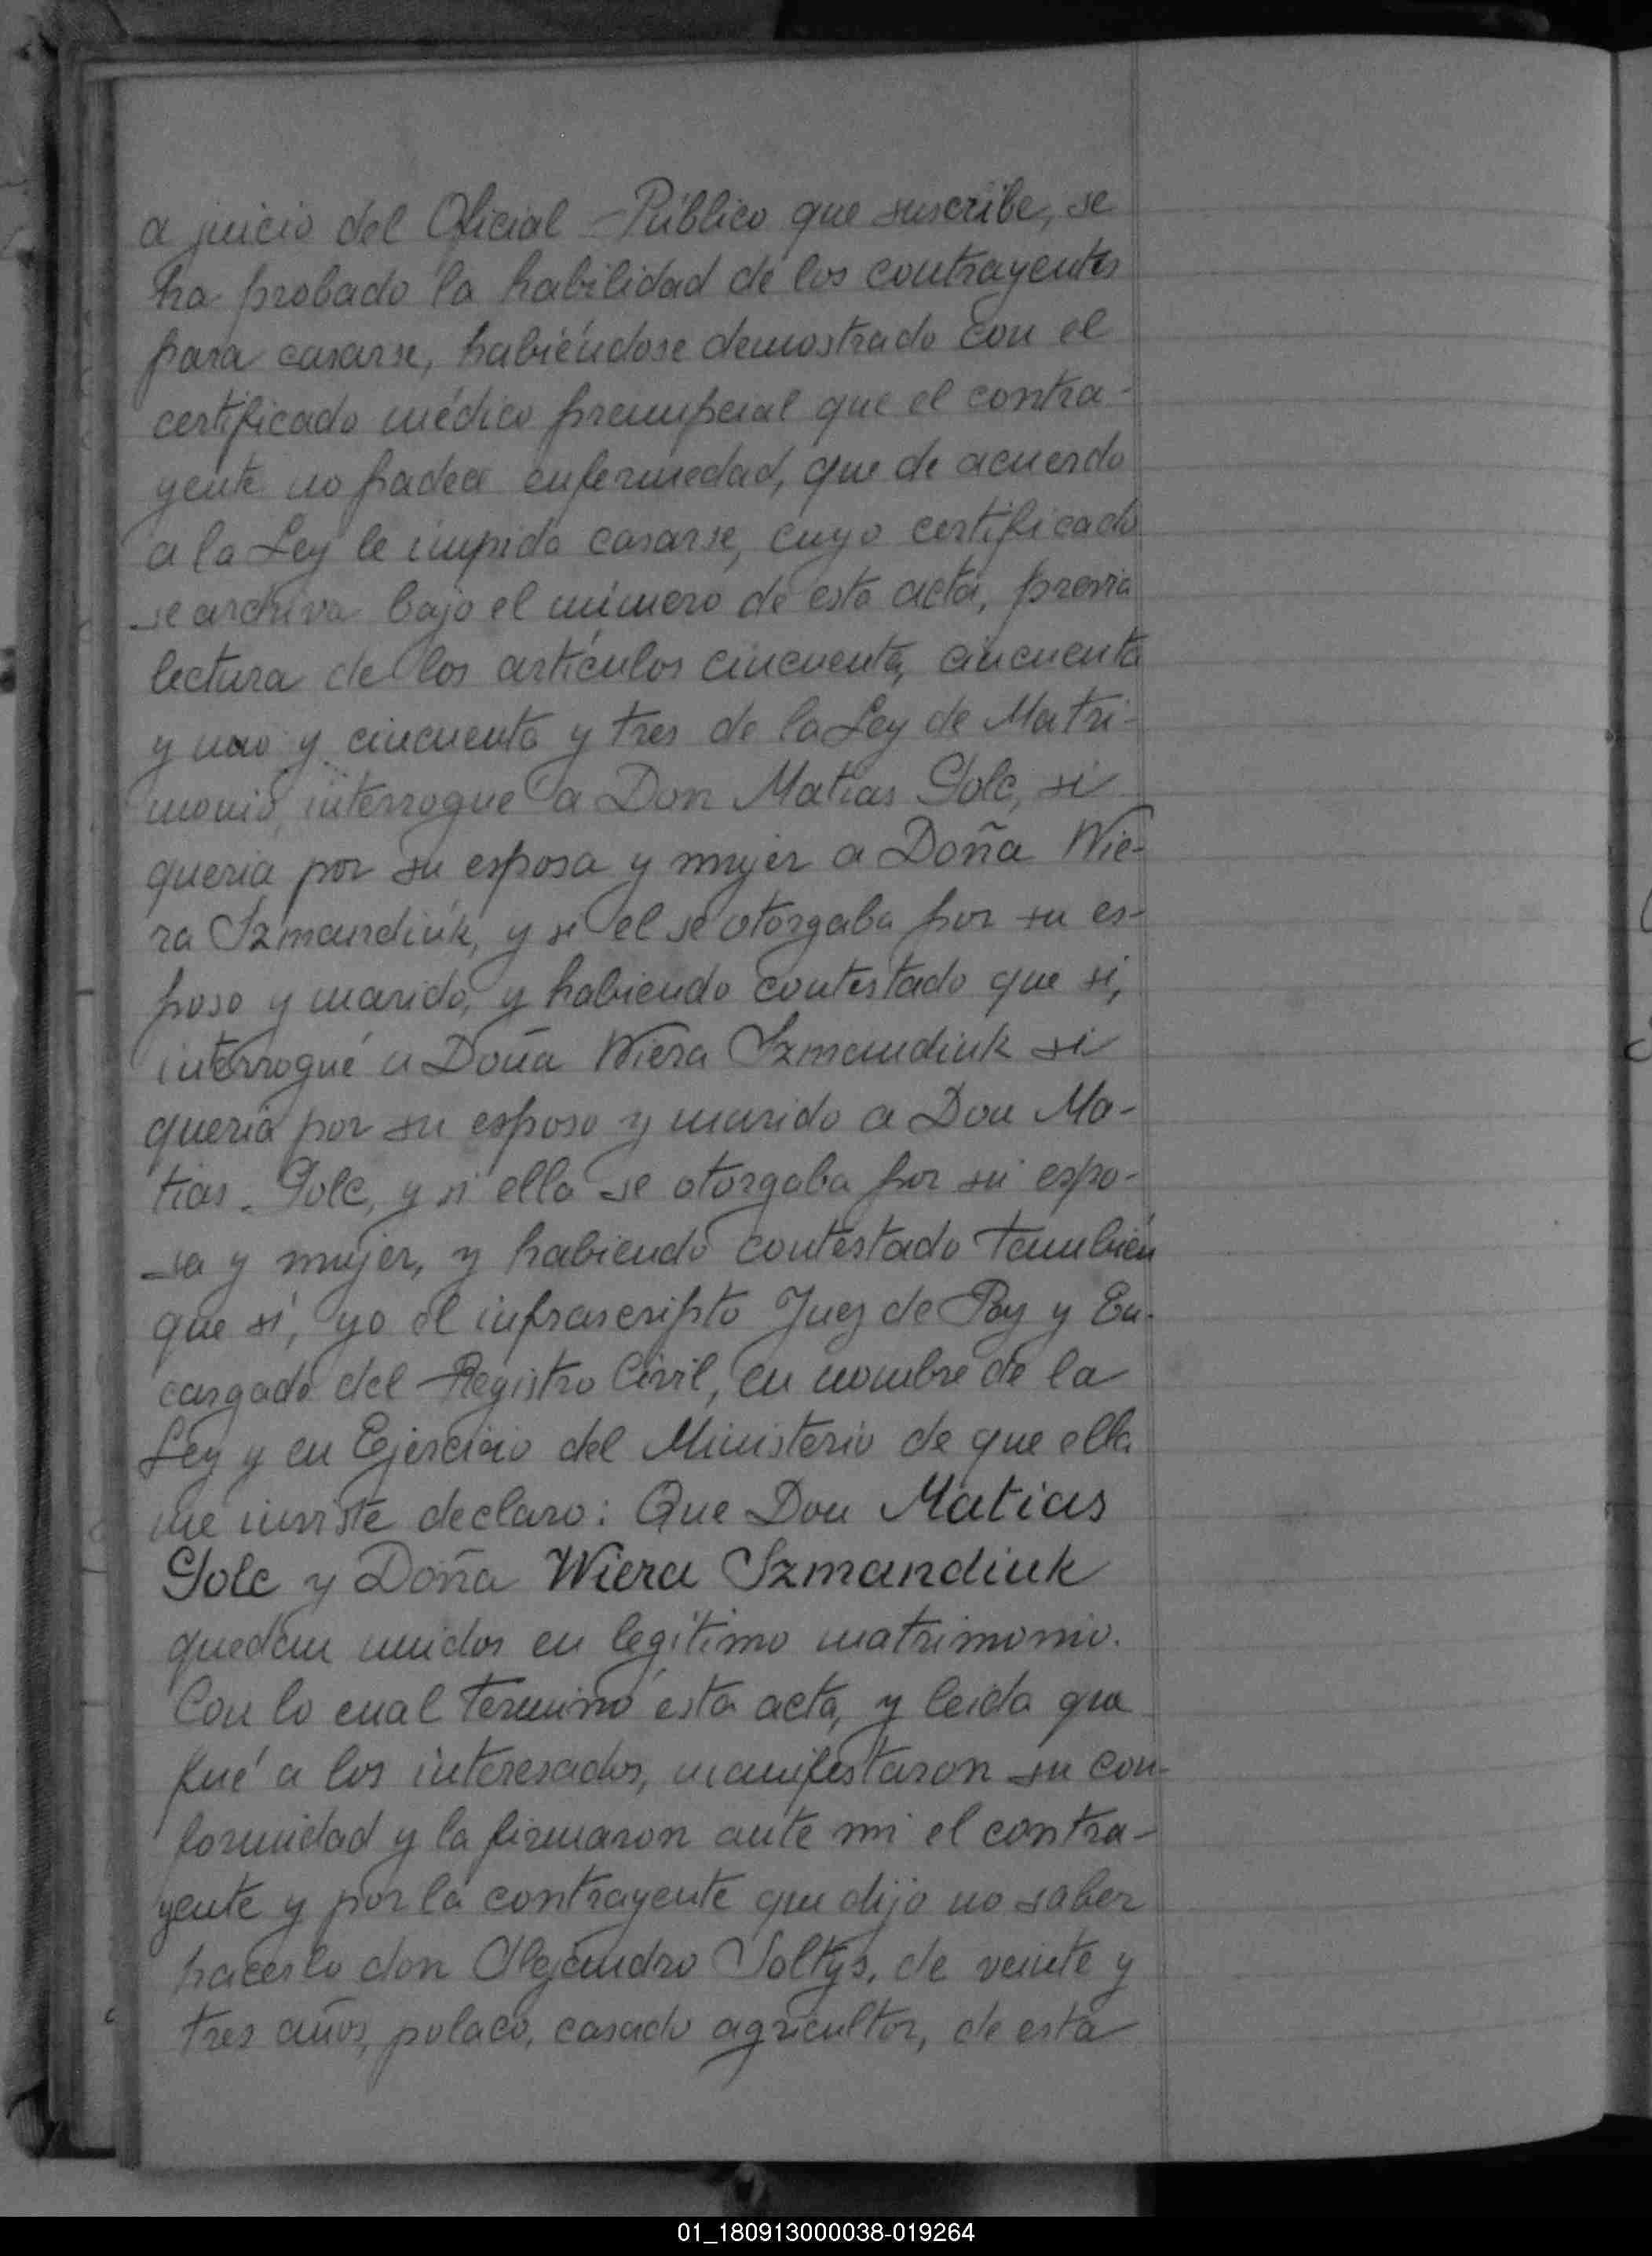 a juicio del Oficial Público que suscribe, se
ha probado la habilidad de los contrayentes
para casarse, habiéndose demostrado con el
certificado médico prenupcial que el contra-
yente no padece enfermedad, que de acuerdo
a la Ley le impida casarse, cuyo certificado
se archiva bajo el número de esta acta, previa
lectura de los artículos cincuenta, cincuenta
y uno y cincuenta y tres de la Ley de Matri-
monio, interrogue a Don Matias Golc, si
queria por su esposa y mujer a Doña Wie-
ra Szmandiuk, y si el se otorgaba por su es-
poso y marido, y habiendo contestado que si,
interrogué a Doña Wiera Szmandiuk si
queria por su esposo y marido a Don Ma-
tias Golc, y si ella se otorgaba por su espo-
sa y mujer, y habiendo contestado también
que sí, yo el infrascripto Juez de Paz y En-
cargado del Registro Civil, en nombre de la
Ley y en Ejercicio del Ministerio de que ella
me inviste declaro: Que Don Matias
Golc y Doña Wiera Szmandiuk
quedan unidos en legítimo matrimonio.
Con lo cual terminó esta acta, y leida que
fué a los interesados, manifestaron su con-
formidad y la firmaron ante mi el contra-
yente y por la contrayente que dijo no saber
hacerlo don Alejandro Soltys, de veinte y
tres años, polaco, casado agricultor, de esta
01_180913000038-019264